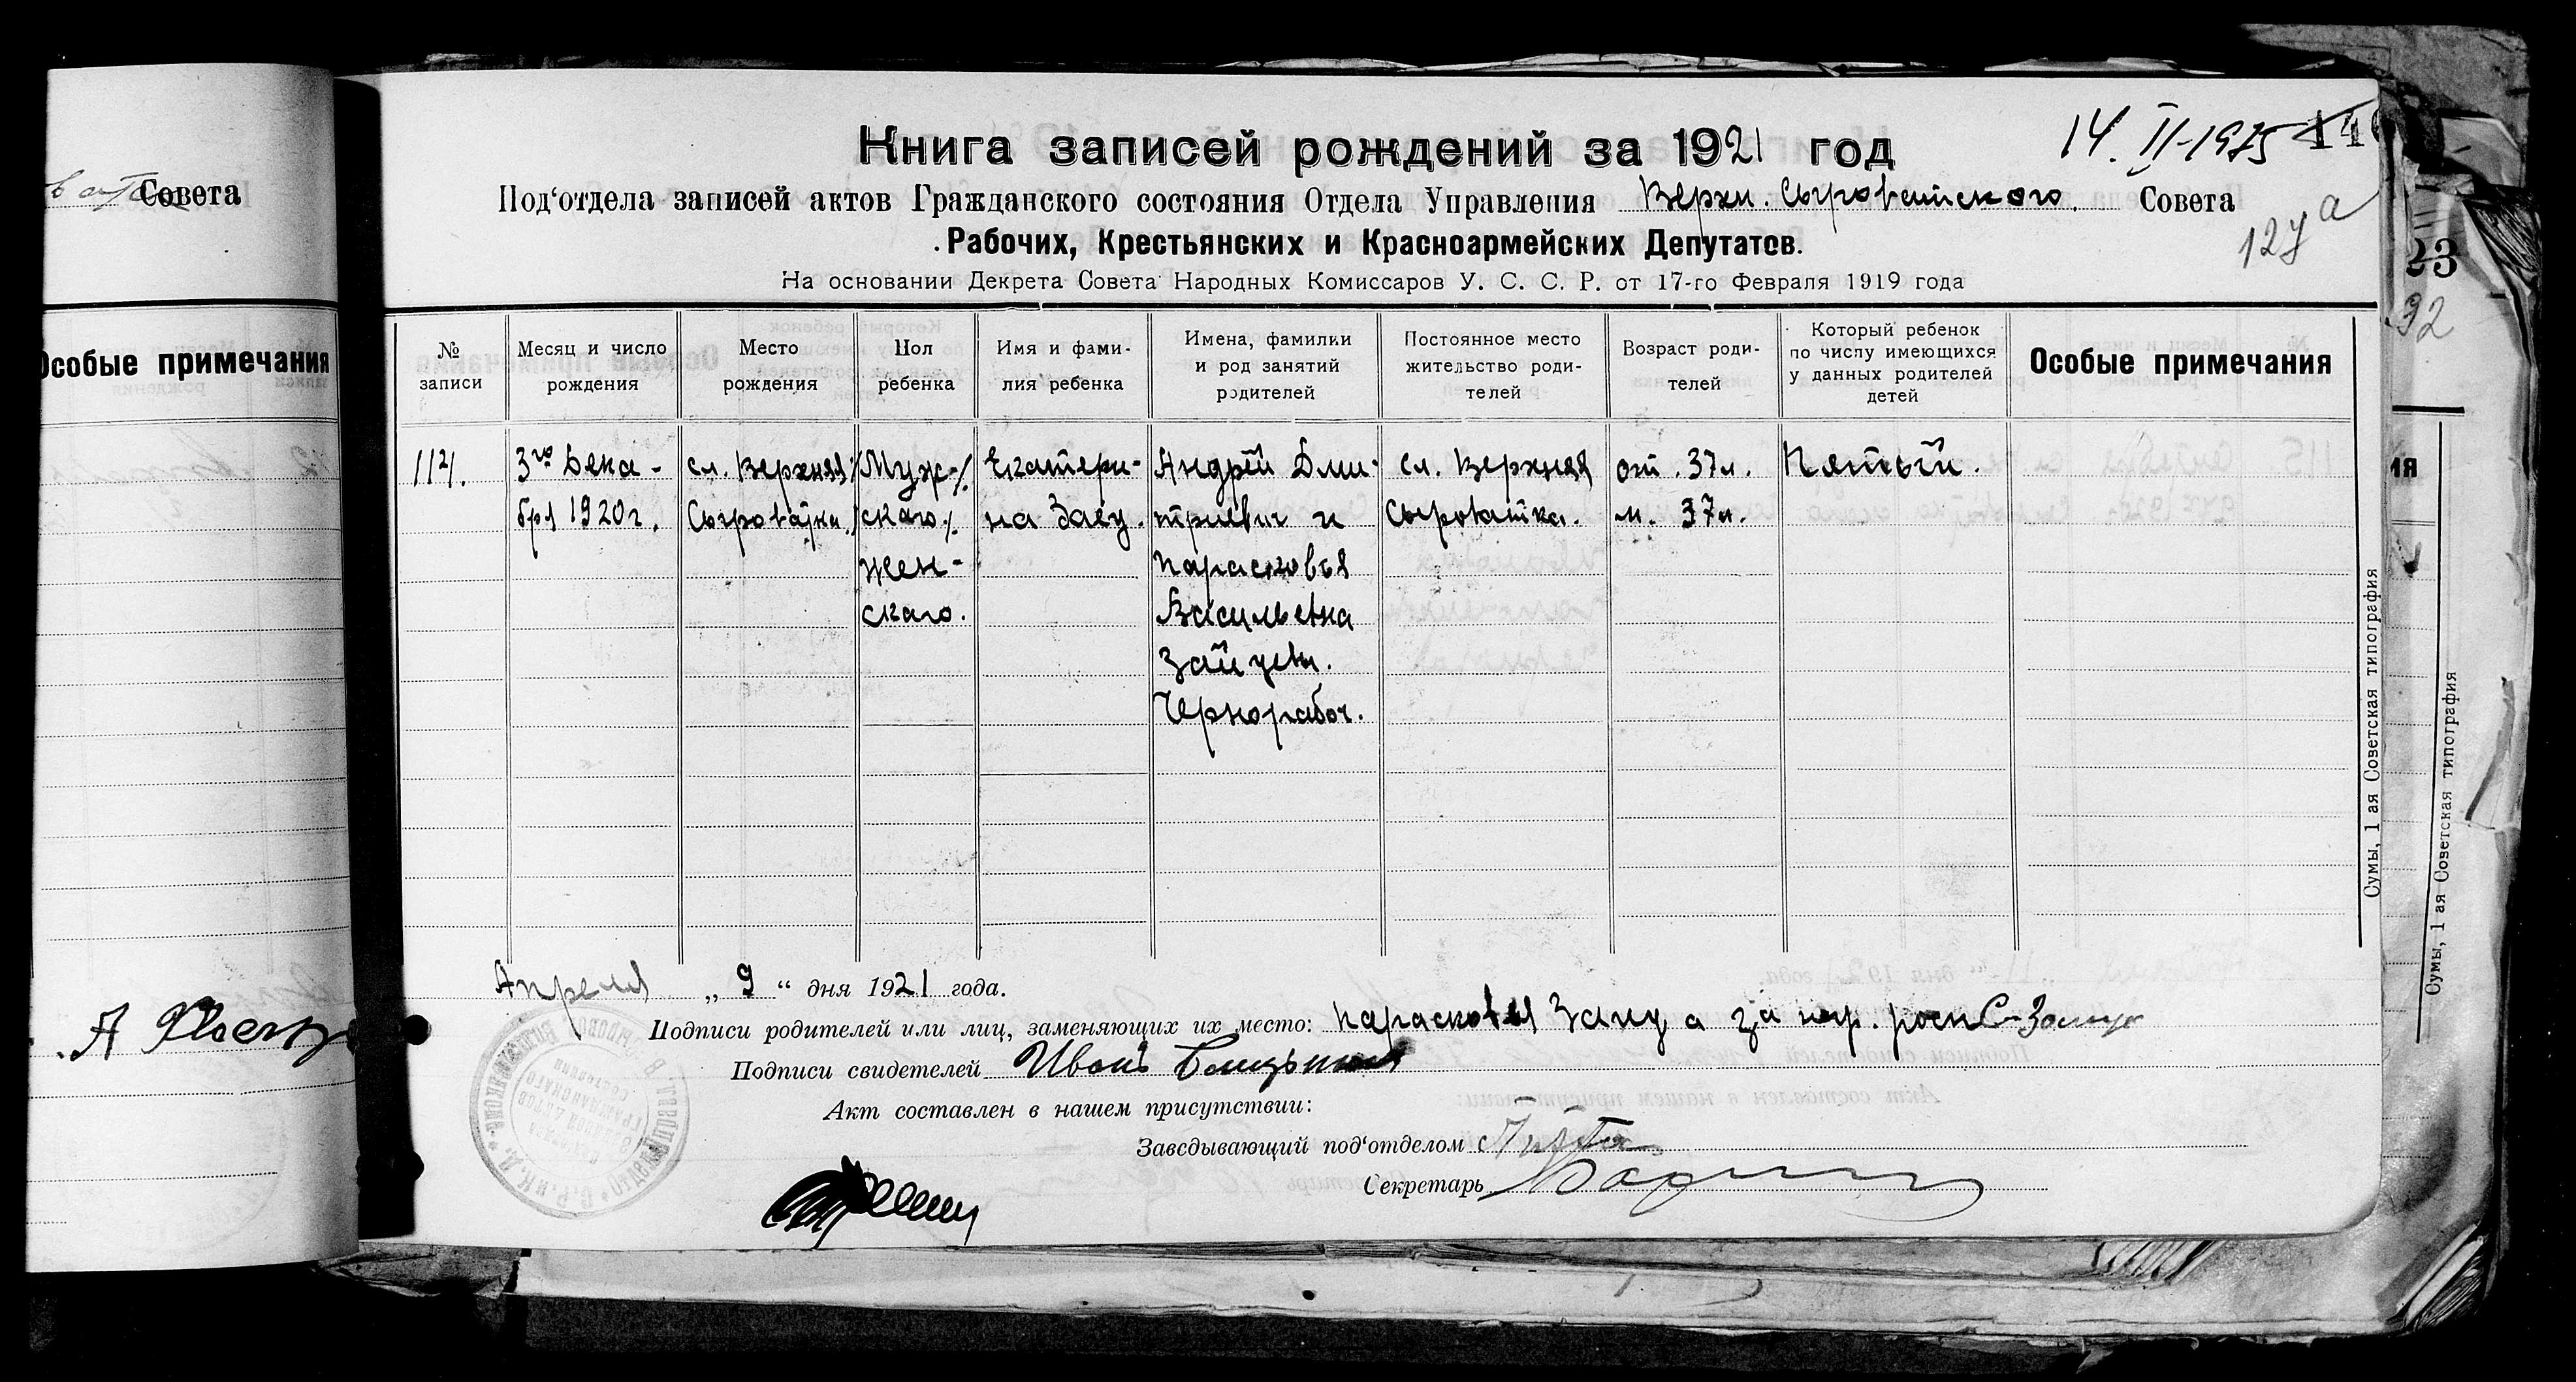 Совета
Особые примечания
14. II-1975
Книга записей рождений за 1921 год
Под'отдела записей актов Гражданского состояния Отдела Управления Верхн. Сыроватского Совета
127 а
Рабочих, Крестьянских и Красноармейских Депутатов.
На основании Декрета Совета Народных Комиссаров У. С. С. Р. от 17-го Февраля 1919 года
23
92
№ записи
Месяц и число рождения
Место рождения
Пол ребенка
Имя и фамилия ребенка
Имена, фамилии и род занятий родителей
Постоянное место жительство родителей
Возраст родителей
Который ребенок по числу имеющихся у данных родителей детей
Особые примечания
3го Дека-
бря 1920г.
сл. Верхняя
Сыроватка.
Муж-
скаго
жен-
скаго.
Екатери-
на
Андрей Дми-
триевич и
Парасковья
Васильевна
Чернорабоч.
сл. Верхняя
Сыроватка.
от. 37л.
м. 37л.
Пятый.
Апреля „ 9 “ дня 1921 года.
Подписи родителей или лиц, заменяющих их место: Парасковья
Подписи свидетелей Иван
Акт составлен в нашем присутствии:
Заведывающий под'отделом
Секретарь
Сумы, 1 ая Советская типография
ия
Сумы, 1 ая Советская типография